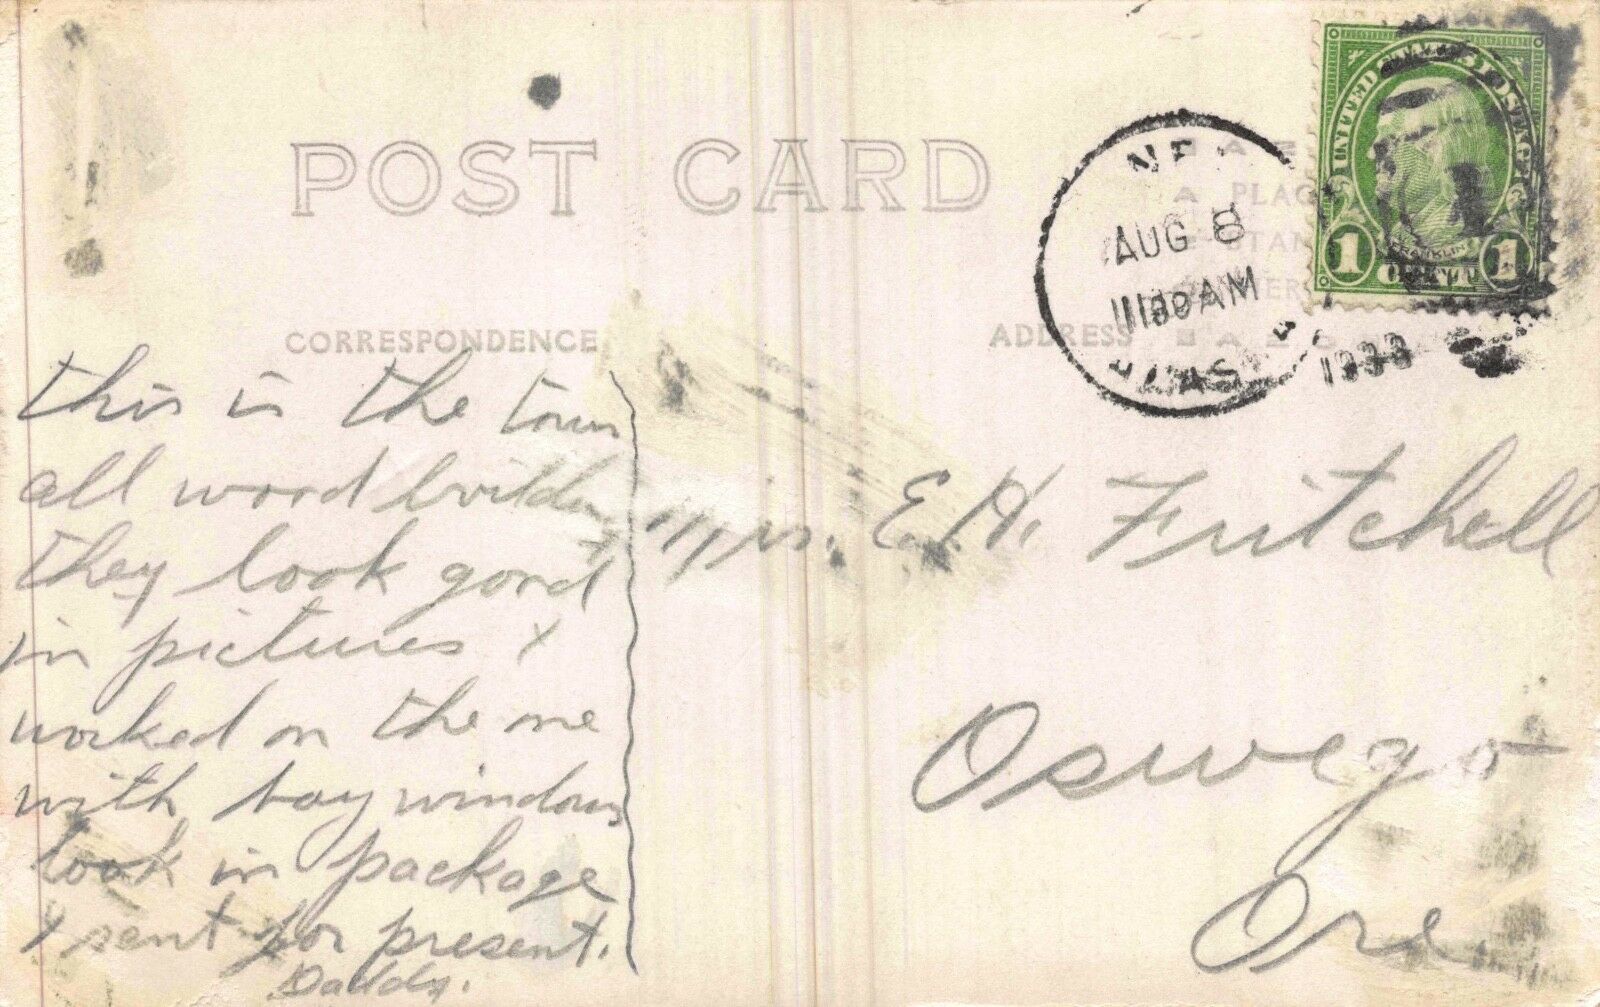 POST CARD
CORRESPONDENCE
ADDRESS
PLAC
STAM
HER
AUG 8
1130AM
ALAS
1933
UNITED STATES POSTAGE
FRANKLIN
1 CENT 1
this is the town
all wood building
they look good
in pictures I
worked on the one
with bay windows
look in package
I sent for present.
Daddy.
Mrs. E. H. Fritchell
Oswego
Ore